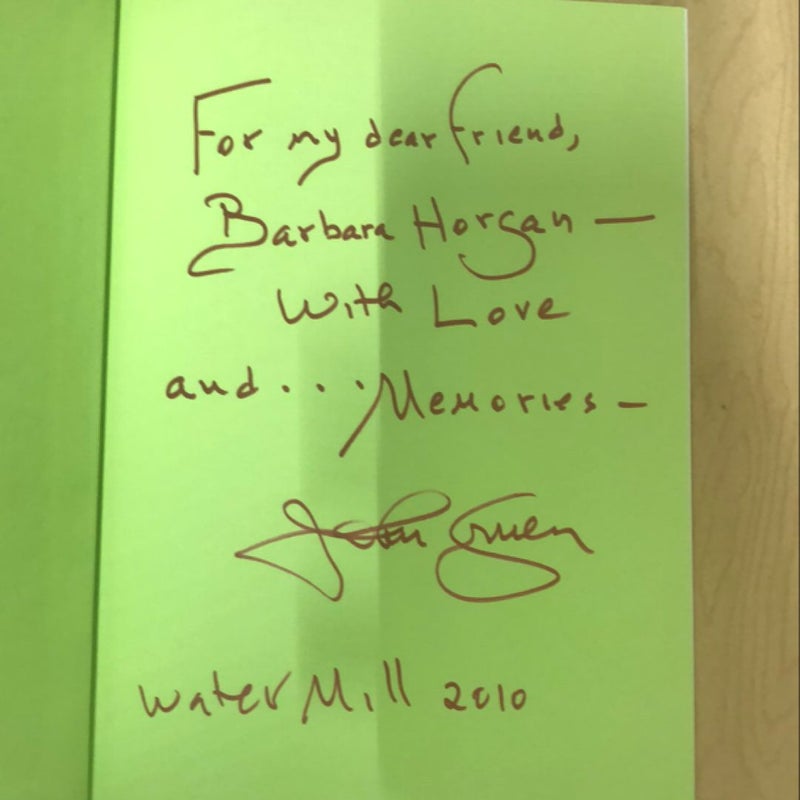 For my dear friend,
Barbara Horgan —
With Love
and... Memories —
John Gruen
Water Mill 2010